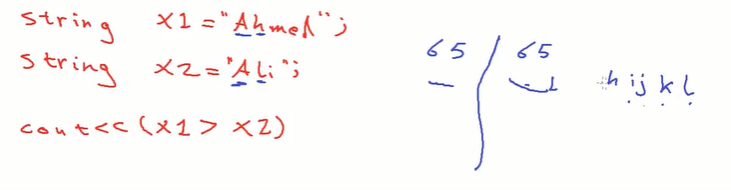 string x1 = "Ahmed";
string x2 = "Ali";
cout<< (x1 > x2)
65 / 65
h i j k l